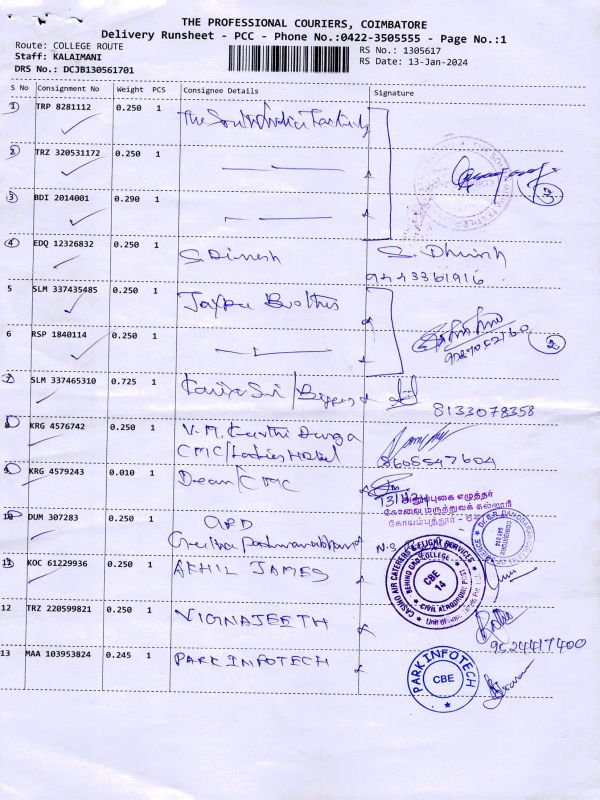 THE PROFESSIONAL COURIERS, COIMBATORE
Delivery Runsheet - PCC - Phone No.:0422-3505555 - Page No.:1
Route: COLLEGE ROUTE
RS No.: 1305617
Staff: KALAIMANI
RS Date: 13-Jan-2024
DRS No.: DCJB130561701
S No Consignment No Weight PCS Consignee Details Signature
1 TRP 8281112 0.250 1 The South India
2 TRZ 320531172 0.250 1
3 BDI 2014001 0.290 1
3
4 EDQ 12326832 0.250 1 S. Dinesh S. Dhinesh
9443361916
5 SLM 337435485 0.250 1 Brothers
6 RSP 1840114 0.250 1
2
7 SLM 337465310 0.725 1
8133078358
8 KRG 4576742 0.250 1 V. M. Durga
CMC/Ladies Hostel
8605547604
9 KRG 4579243 0.010 1 Dean/CMC
13/1/24
கோவை மருத்துவக் கல்லூரி
10 DUM 307283 0.250 1 APD
11 KOC 61229936 0.250 1 AKHIL JAMES
CASINO AIR CATERERS & FLIGHT SERVICES
BEHIND GRD COLLEGE
CBE
14
CIVIL AERODROME POST
12 TRZ 220599821 0.250 1 VIGNAJEETH
9524417400
13 MAA 103953824 0.245 1 PARK INFOTECH
PARK INFOTECH
CBE